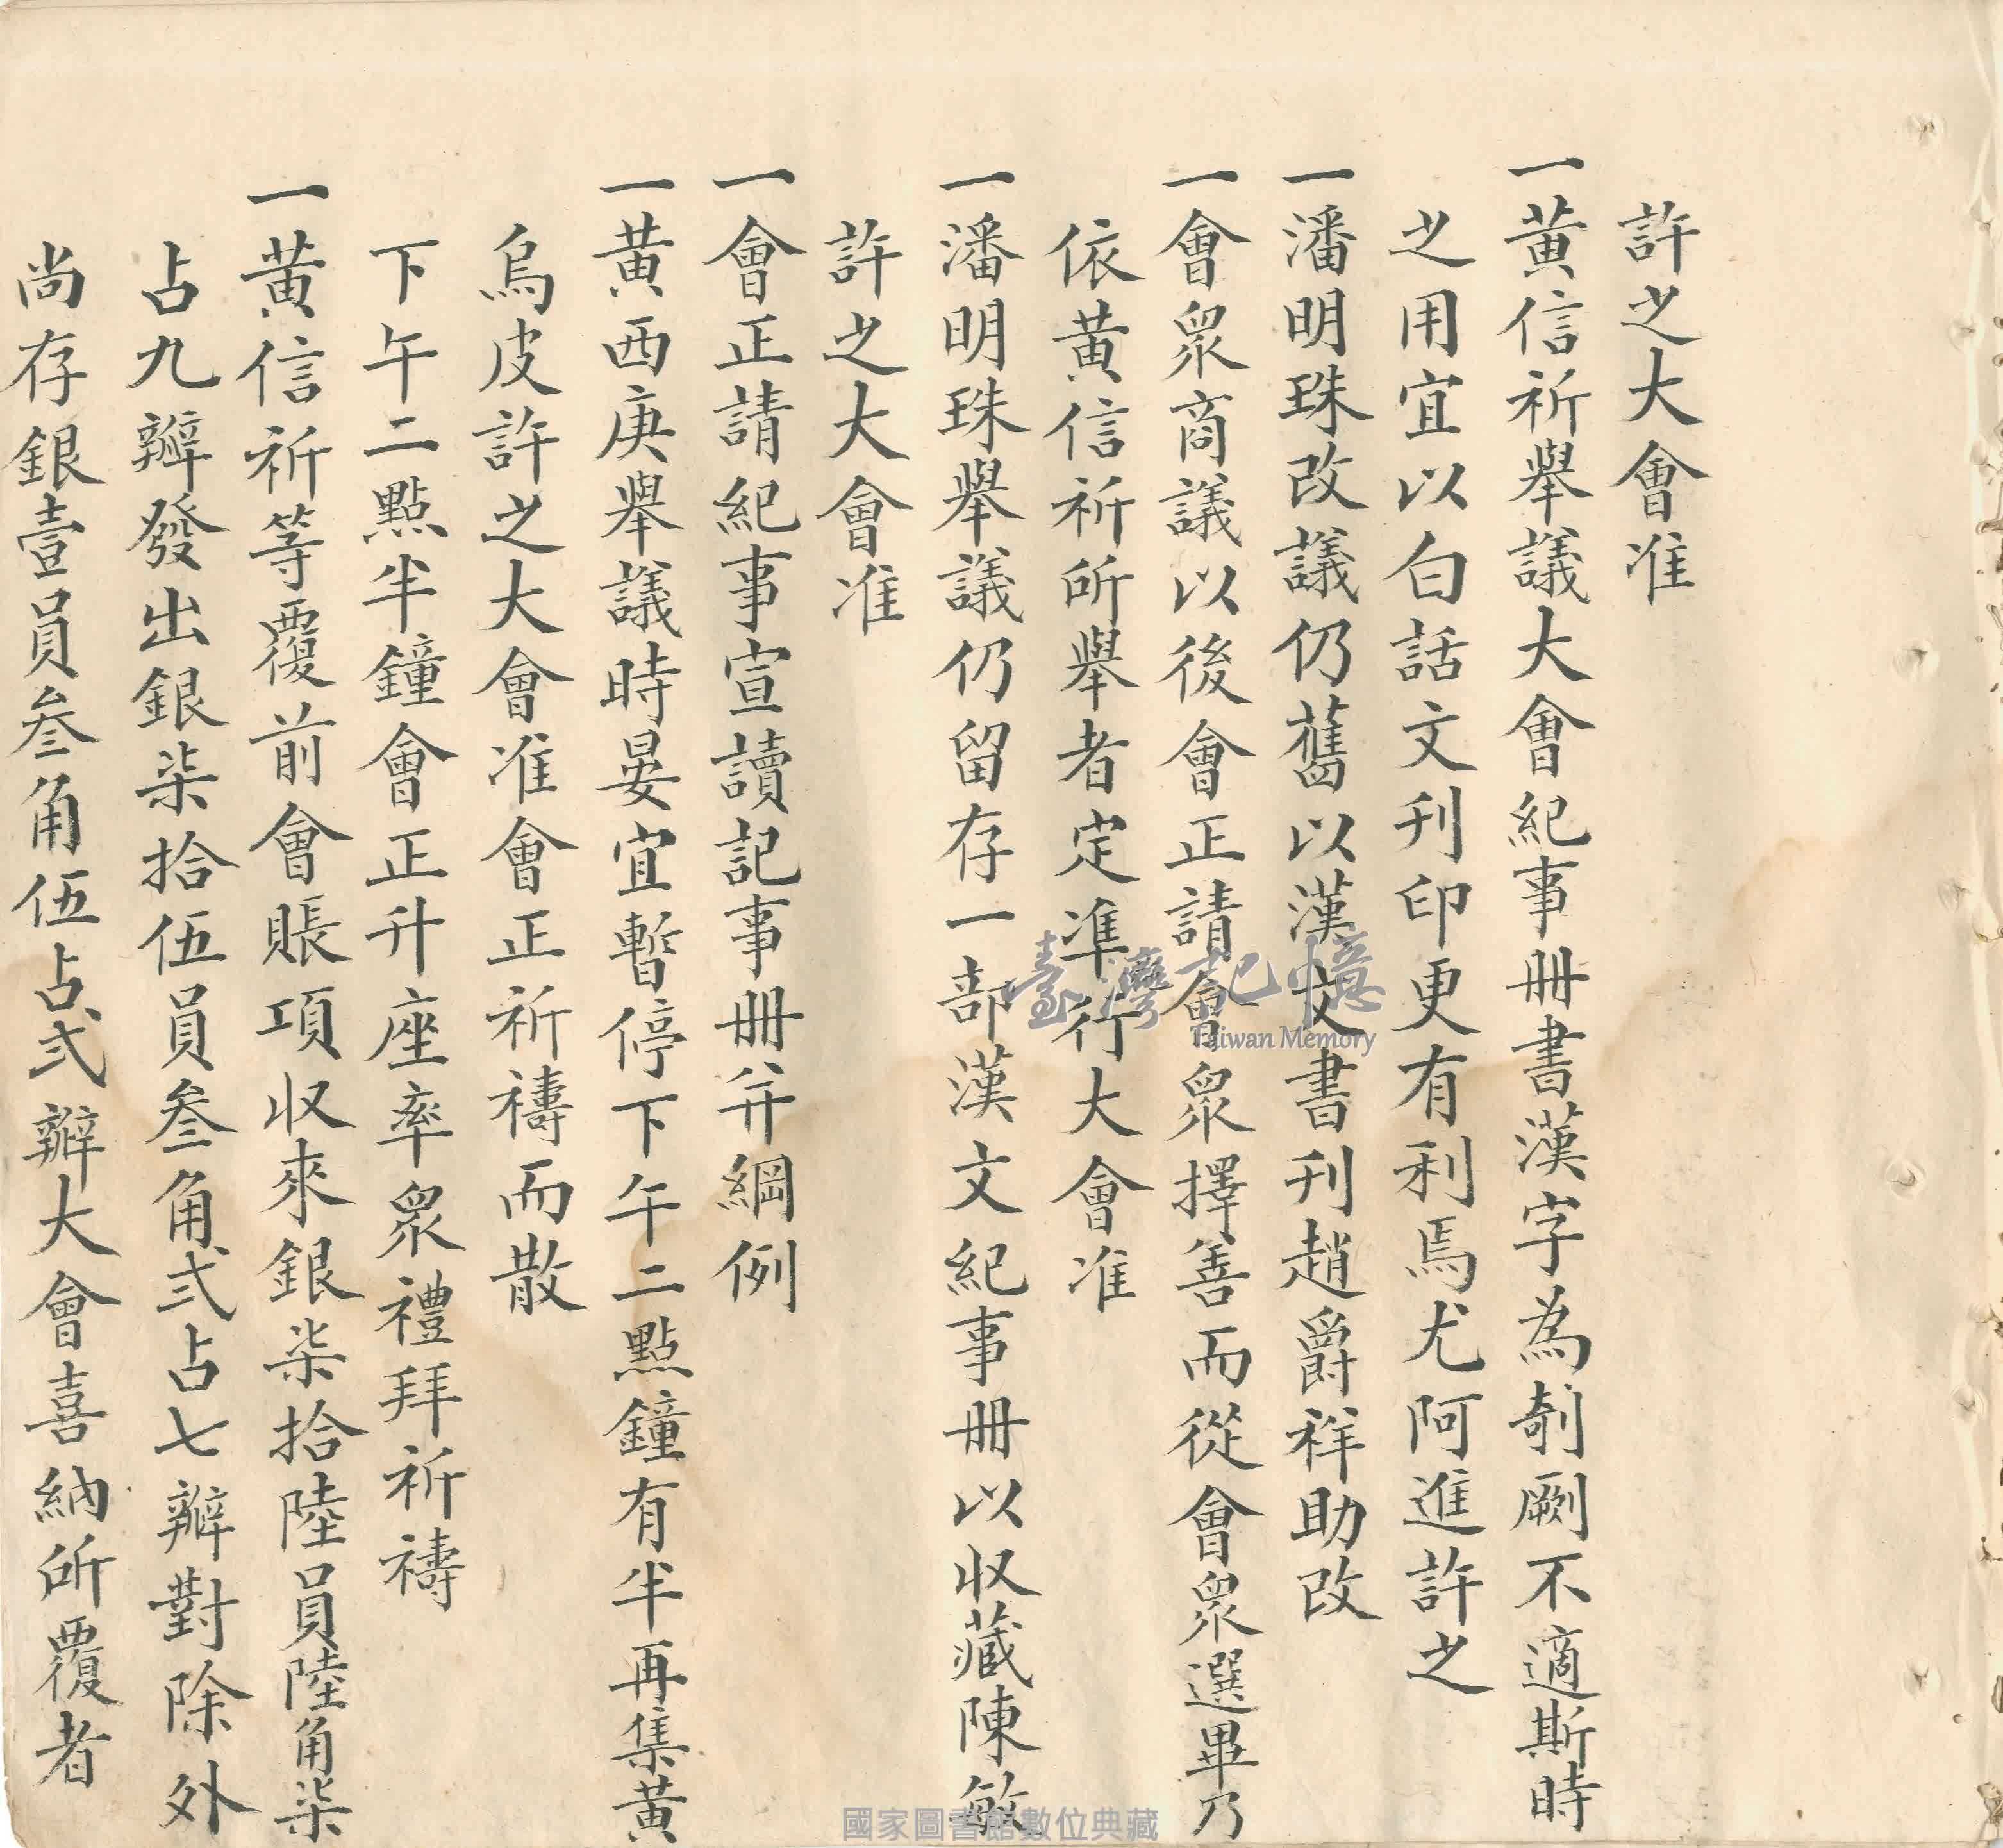 許之大會准
一黃信祈舉議大會紀事冊書漢字為剞劂不適斯時
之用宜以白話文刊印更有利焉尤阿進許之
一潘明珠改議仍舊以漢文書刊趙爵祥助改
一會眾商議以後會正請會眾擇善而從會眾選畢乃
依黃信祈所舉者定準行大會准
一潘明珠舉議仍留存一部漢文紀事冊以收藏陳敏
許之大會准
一會正請紀事宣讀記事冊并綱例
一黃西庚舉議時晏宜暫停下午二點鐘有半再集黃
烏皮許之大會准會正祈禱而散
下午二點半鐘會正升座率眾禮拜祈禱
一黃信祈等覆前會賬項收來銀柒拾陸員陸角柒
占九辦發出銀柒拾伍員叁角弍占七辦對除外
尚存銀壹員叁角伍占弍辦大會喜納所覆者
臺灣記憶
Taiwan Memory
國家圖書館數位典藏